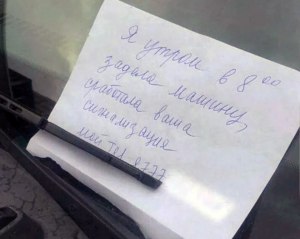 Я утром в 8⁰⁰
задела машину,
сработала ваша
сигнализация
мой тел